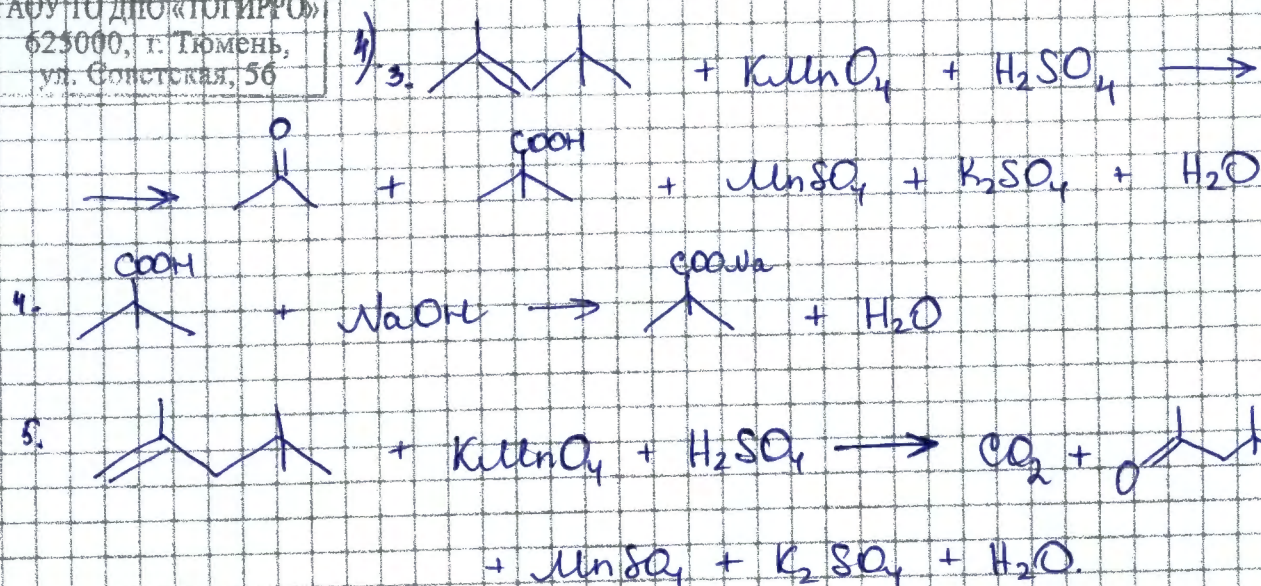 АОУ ТО ДПО «ТОГИРРО»
625000, г. Тюмень,
ул. Советская, 56
4) 3. + KMnO4 + H2SO4 →
→ O + COOH + MnSO4 + K2SO4 + H2O
4. COOH + NaOH → COONa + H2O
5. + KMnO4 + H2SO4 → CO2 + O
+ MnSO4 + K2SO4 + H2O.